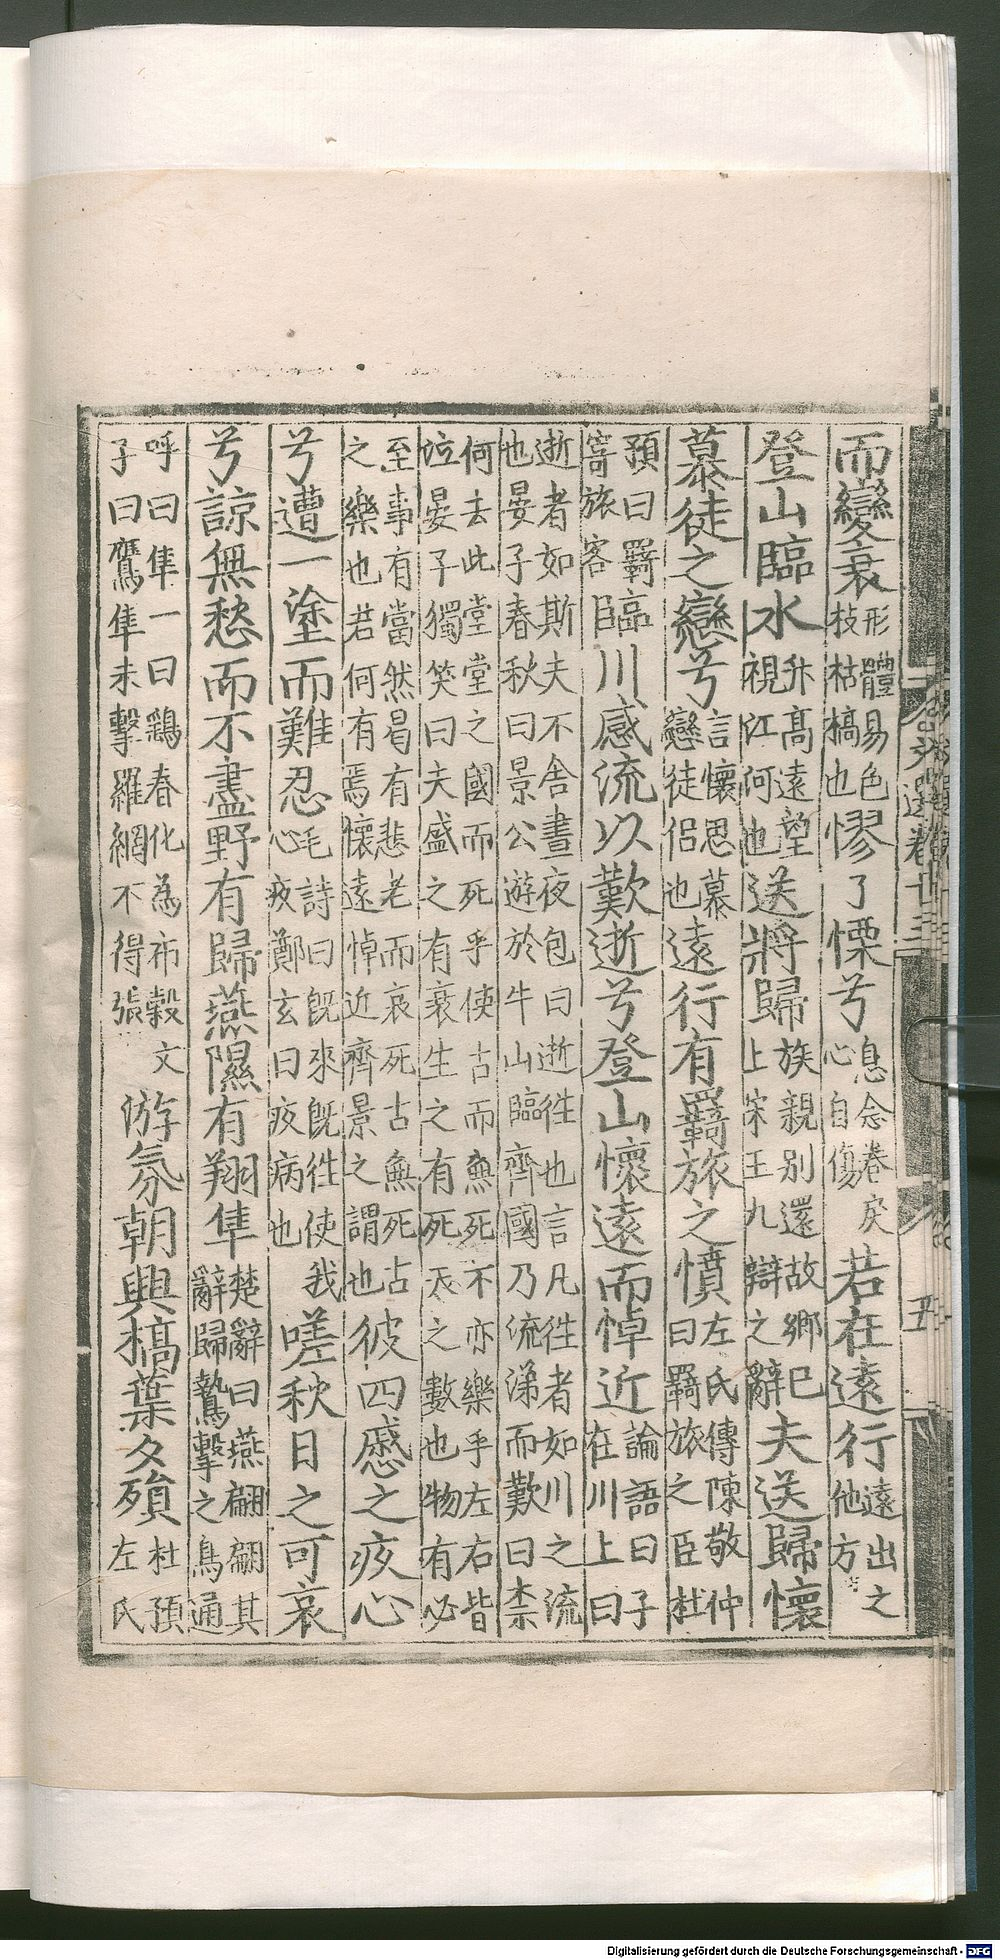 而變衰形體易色枝枯槁也憀了慄兮息念卷戾心自傷若在遠行遠出之他方
登山臨水升高遠望視江河也送將歸族親别還故鄉巳上宋玉九辯之辭夫送歸懷
慕徒之戀兮言懷思慕戀徒侣也遠行有羇旅之憤左氏傳陳敬仲曰羇旅之臣杜
預曰羇寄旅客臨川感流以歎逝兮登山懷遠而悼近論語曰子在川上曰
逝者如斯夫不舎晝夜包曰逝徃也言凡徃者如川之流也晏子春秋曰景公遊於牛山臨齊國乃流涕而歎曰柰
何去此堂堂之國而死乎使古而無死不亦樂乎左右皆泣晏子獨笑曰夫盛之有衰生之有死天之數也物有必
至事有當然曷有悲老而哀死古無死古之樂也君何有焉懷遠悼近齊景之謂也彼四慼之疚心
兮遭一塗而難忍毛詩曰旣來旣徃使我心疚鄭玄曰疚病也嗟秋日之可哀
兮諒無愁而不盡野有歸燕隰有翔隼楚辭曰燕翩翩其辭歸鷙擊之鳥通
呼曰隼一曰鷂春化為布穀文子曰鷹隼未擊羅網不得張游氛朝興槁葉夕殞杜預左氏
文選卷十三
五
Digitalisierung gefördert durch die Deutsche Forschungsgemeinschaft - DFG